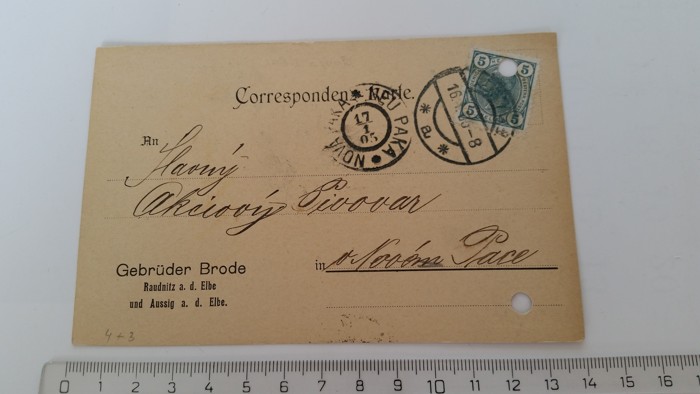 Correspondenz-Karte.
5 5
5 5
NEU PAKA
NOVÁ PAKA
17
1
05
16
-8
* a *
An
Slavný
Akciový Pivovar
in v Novém Pace
Gebrüder Brode
Raudnitz a. d. Elbe
und Aussig a. d. Elbe.
4+3
0 1 2 3 4 5 6 7 8 9 10 11 12 13 14 15 16